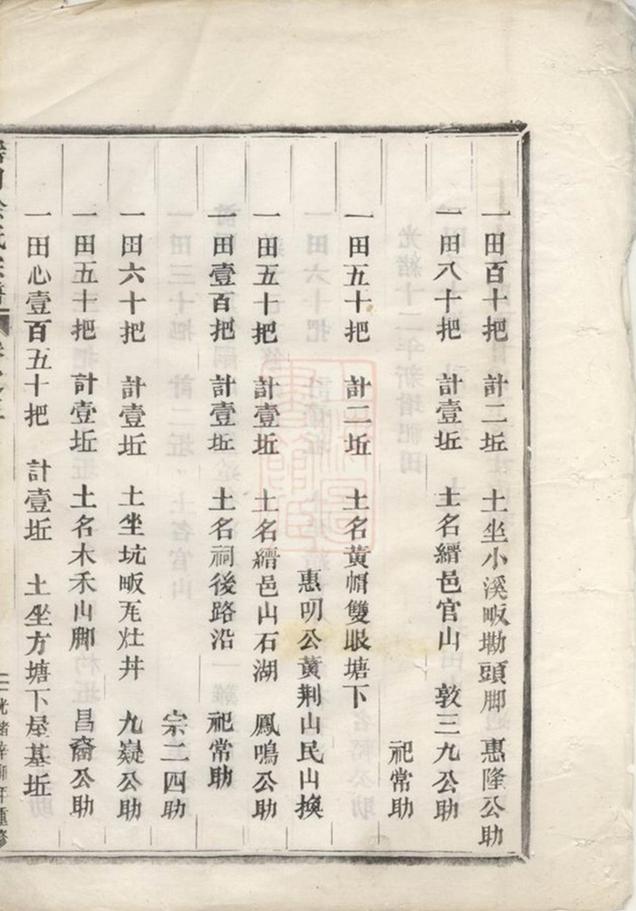 一田百十把 計二坵 土坐小溪畈塝頭脚 惠隆公助
一田八十把 計壹坵 土名縉邑官山 敦三九公助
祀常助
一田五十把 計二坵 土名黃帽雙眼塘下
惠明公黃荆山民山換
一田五十把 計壹坵 土名縉邑山石湖 鳳鳴公助
一田壹百把 計壹坵 土名祠後路沿 祀常助
宗二四助
一田六十把 計壹坵 土坐坑畈瓦灶丼 九嶷公助
一田五十把 計壹坵 土名木禾山脚 昌裔公助
一田心壹百五十把 計壹坵 土坐方塘下屋基坵